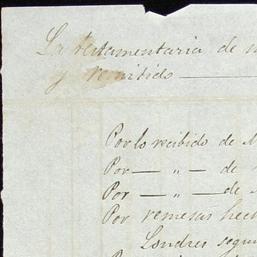 La testamentaria de
y remitido
Por lo recibido de
Por — " — de
Por — " — de
Por remesas hec
Londres segu